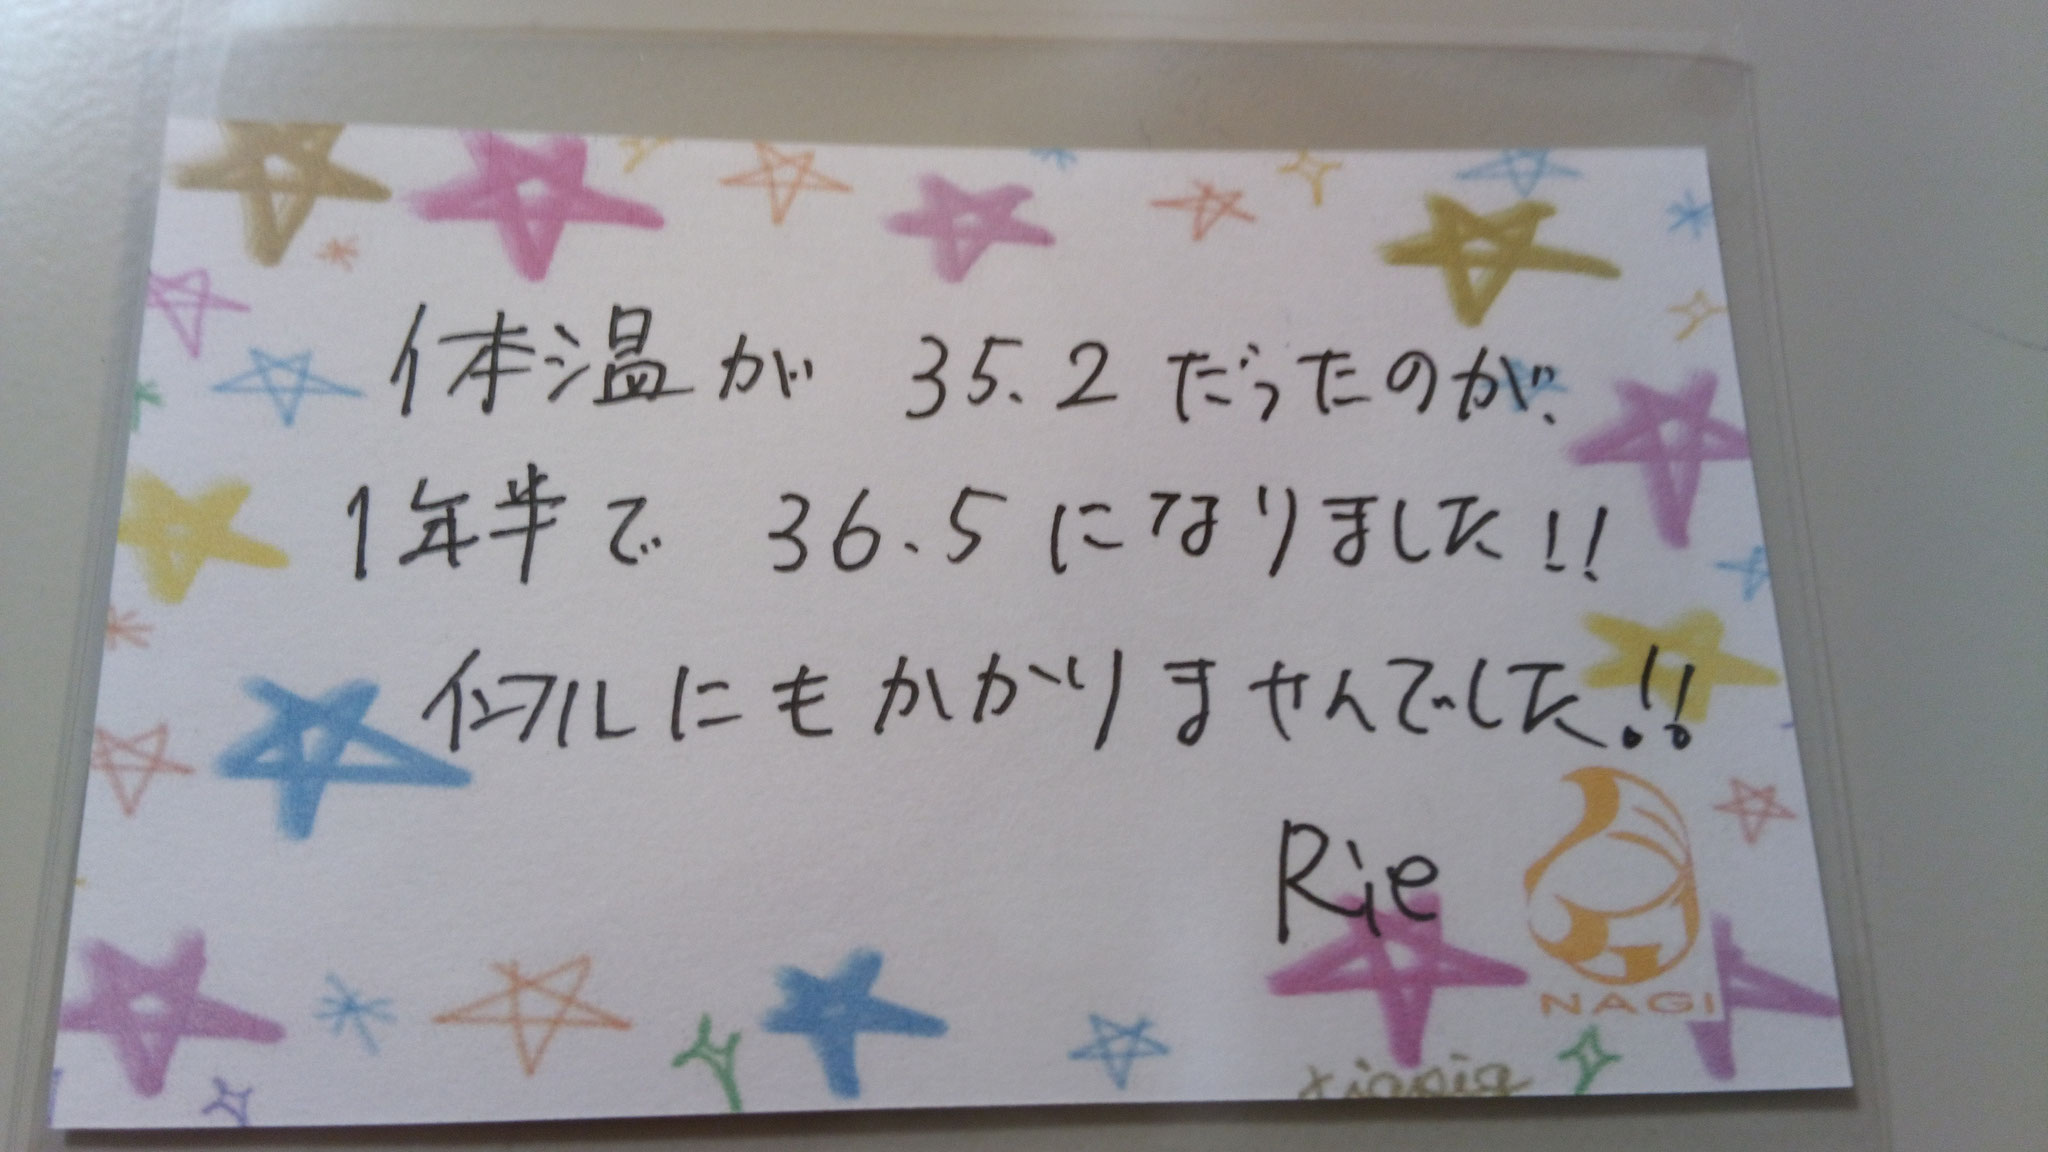 体温が 35.2 だったのが、
1年半で 36.5 になりました!!
インフルにもかかりませんでした!!
Rie
NAGI